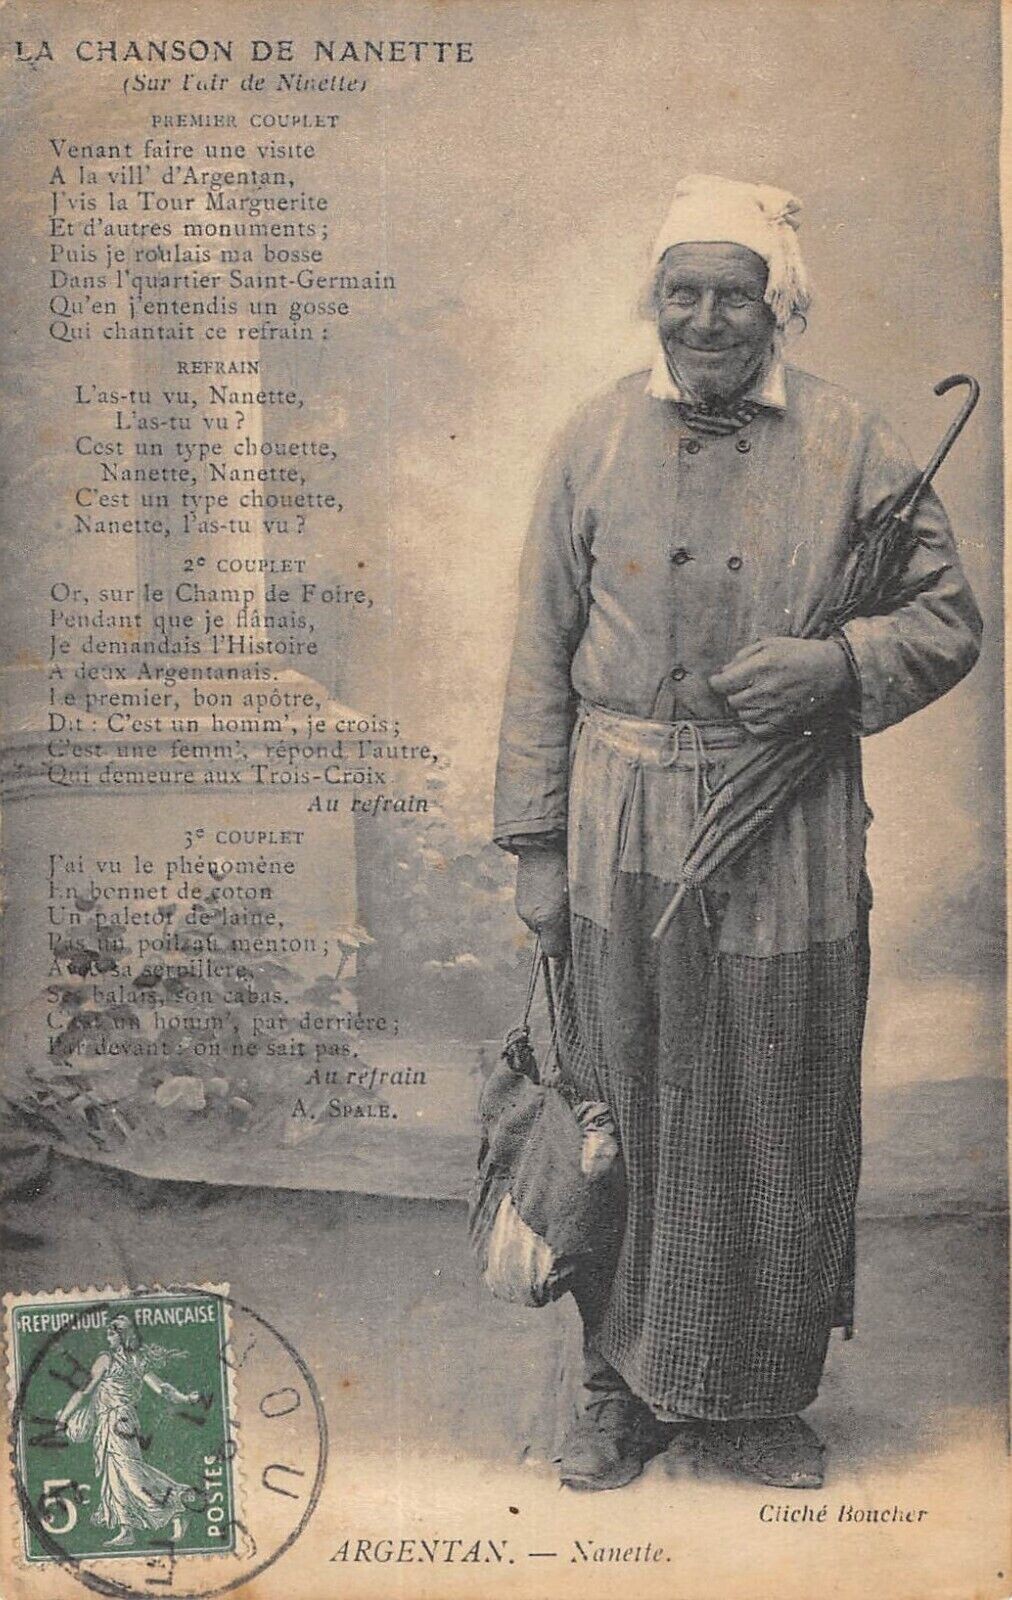 LA CHANSON DE NANETTE
(Sur l'air de Ninette)
PREMIER COUPLET
Venant faire une visite
A la vill' d'Argentan,
J'vis la Tour Marguerite
Et d'autres monuments;
Puis je roulais ma bosse
Dans l'quartier Saint-Germain
Qu'en j'entendis un gosse
Qui chantait ce refrain :
REFRAIN
L'as-tu vu, Nanette,
L'as-tu vu ?
C'est un type chouette,
Nanette, Nanette,
C'est un type chouette,
Nanette, l'as-tu vu ?
2e COUPLET
Or, sur le Champ de Foire,
Pendant que je flânais,
Je demandais l'Histoire
A deux Argentanais.
Le premier, bon apôtre,
Dit : C'est un homm', je crois;
C'est une femm', répond l'autre,
Qui demeure aux Trois-Croix
Au refrain
3e COUPLET
J'ai vu le phénomène
En bonnet de coton
Un paletot de laine,
Pas un poil au menton;
Avec sa serpillère,
Ses balais, son cabas.
C'est un homm', par derrière;
Par devant : on ne sait pas.
Au refrain
A. SPALE.
REPUBLIQUE FRANÇAISE
5c
POSTES
Cliché Boucher
ARGENTAN. — Nanette.